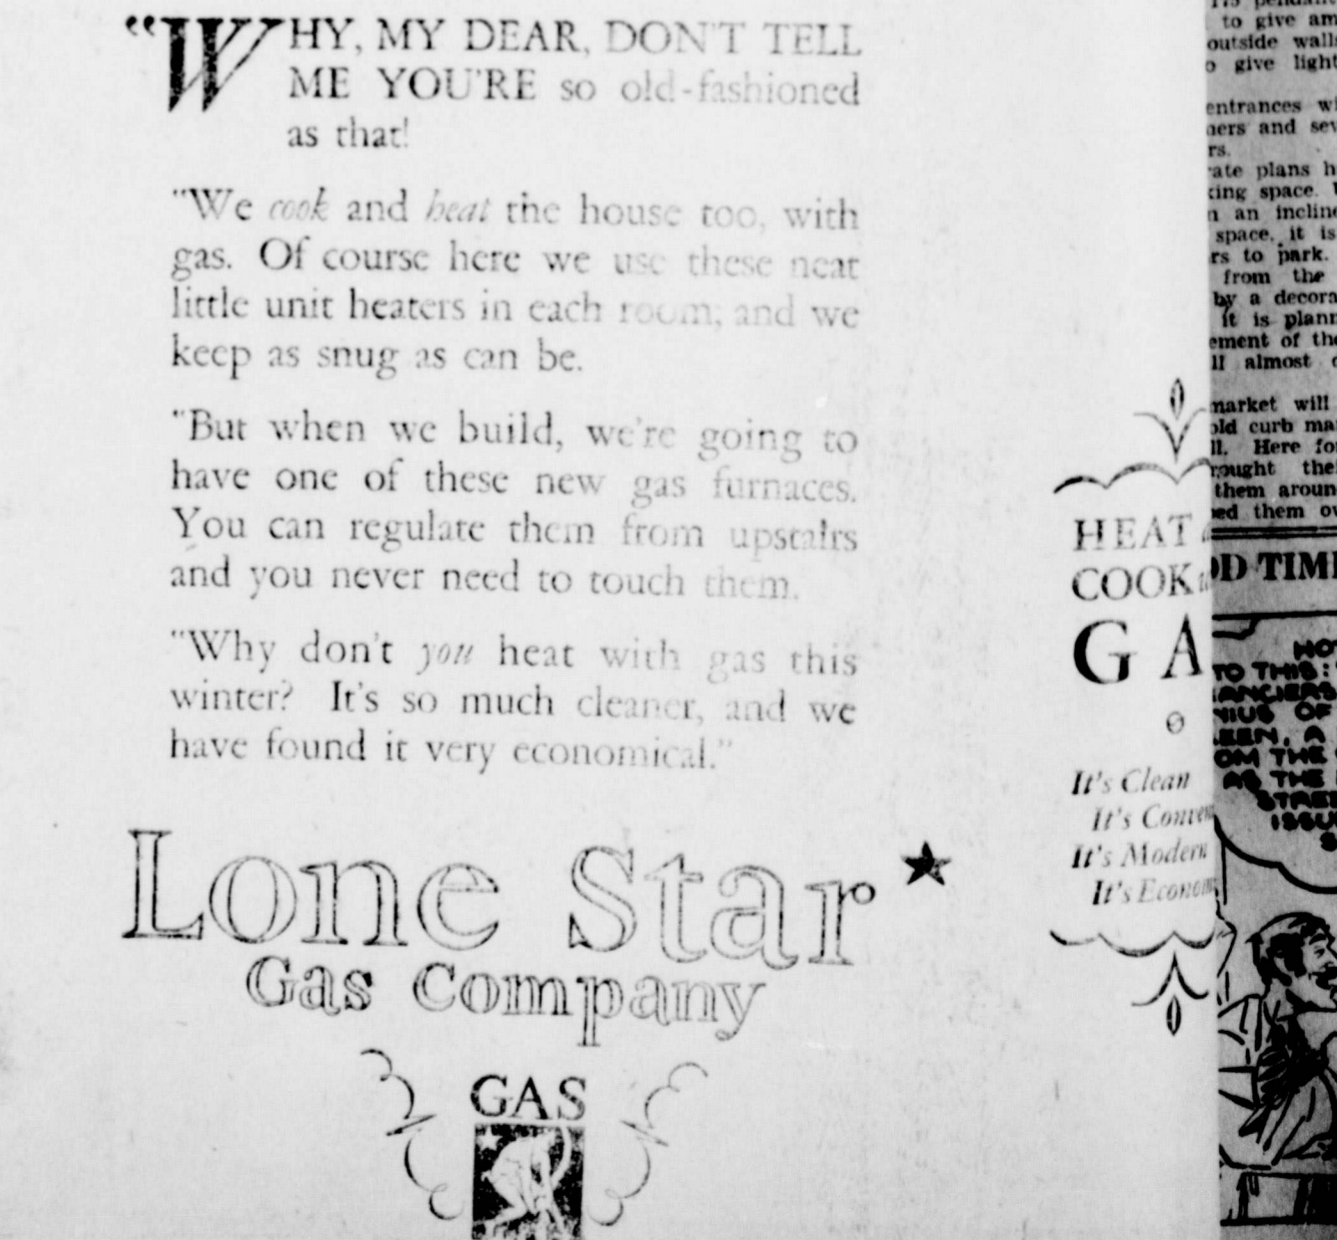 "WHY, MY DEAR, DON'T TELL
ME YOU'RE so old-fashioned
as that!
"We cook and heat the house too, with
gas. Of course here we use these neat
little unit heaters in each room; and we
keep as snug as can be.
"But when we build, we're going to
have one of these new gas furnaces.
You can regulate them from upstairs
and you never need to touch them.
"Why don't you heat with gas this
winter? It's so much cleaner, and we
have found it very economical."
Lone Star
Gas Company
GAS
HEAT
COOK
GA
It's Clean
It's Conven
It's Modern
It's Econom
to give
outside
give light
entrances
and
plans
space.
an
space, it is
to park.
from the
by a
it is
of the
almost
market will
curb
Here
them
them
TIM
TO THIS:
OF
A
THE
AS THE